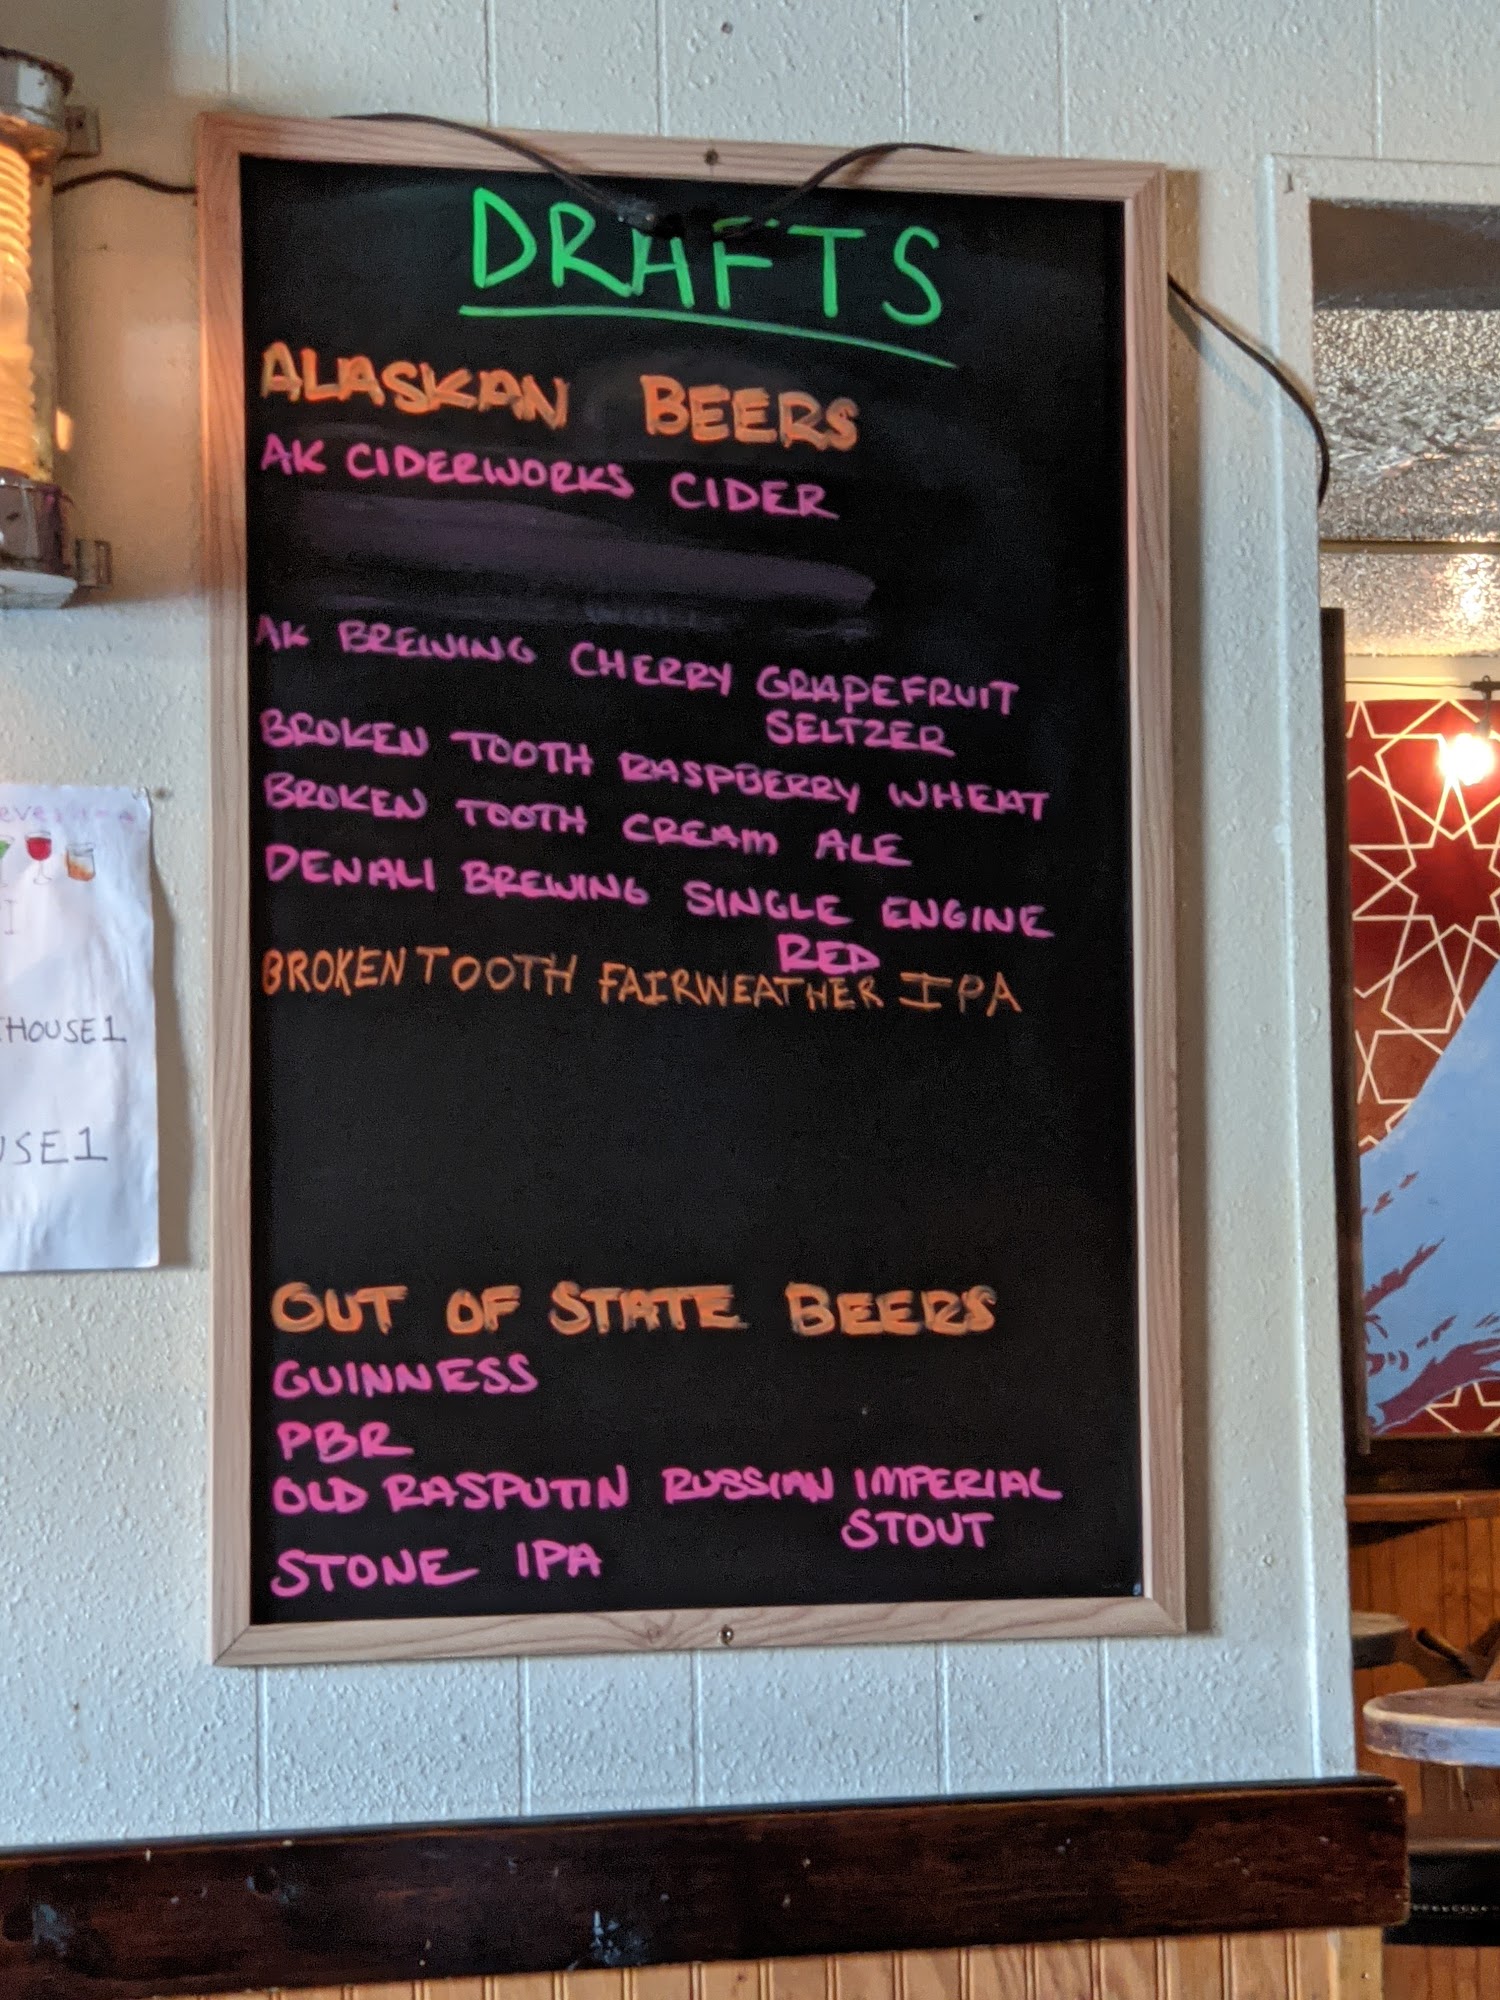 DRAFTS
ALASKAN BEERS
AK CIDERWORKS CIDER
AK BREWING CHERRY GRAPEFRUIT
SELTZER
BROKEN TOOTH RASPBERRY WHEAT
BROKEN TOOTH CREAM ALE
DENALI BREWING SINGLE ENGINE
RED
BROKEN TOOTH FAIRWEATHER IPA
OUT OF STATE BEERS
GUINNESS
PBR
OLD RASPUTIN RUSSIAN IMPERIAL
STOUT
STONE IPA
THOUSE1
USE1